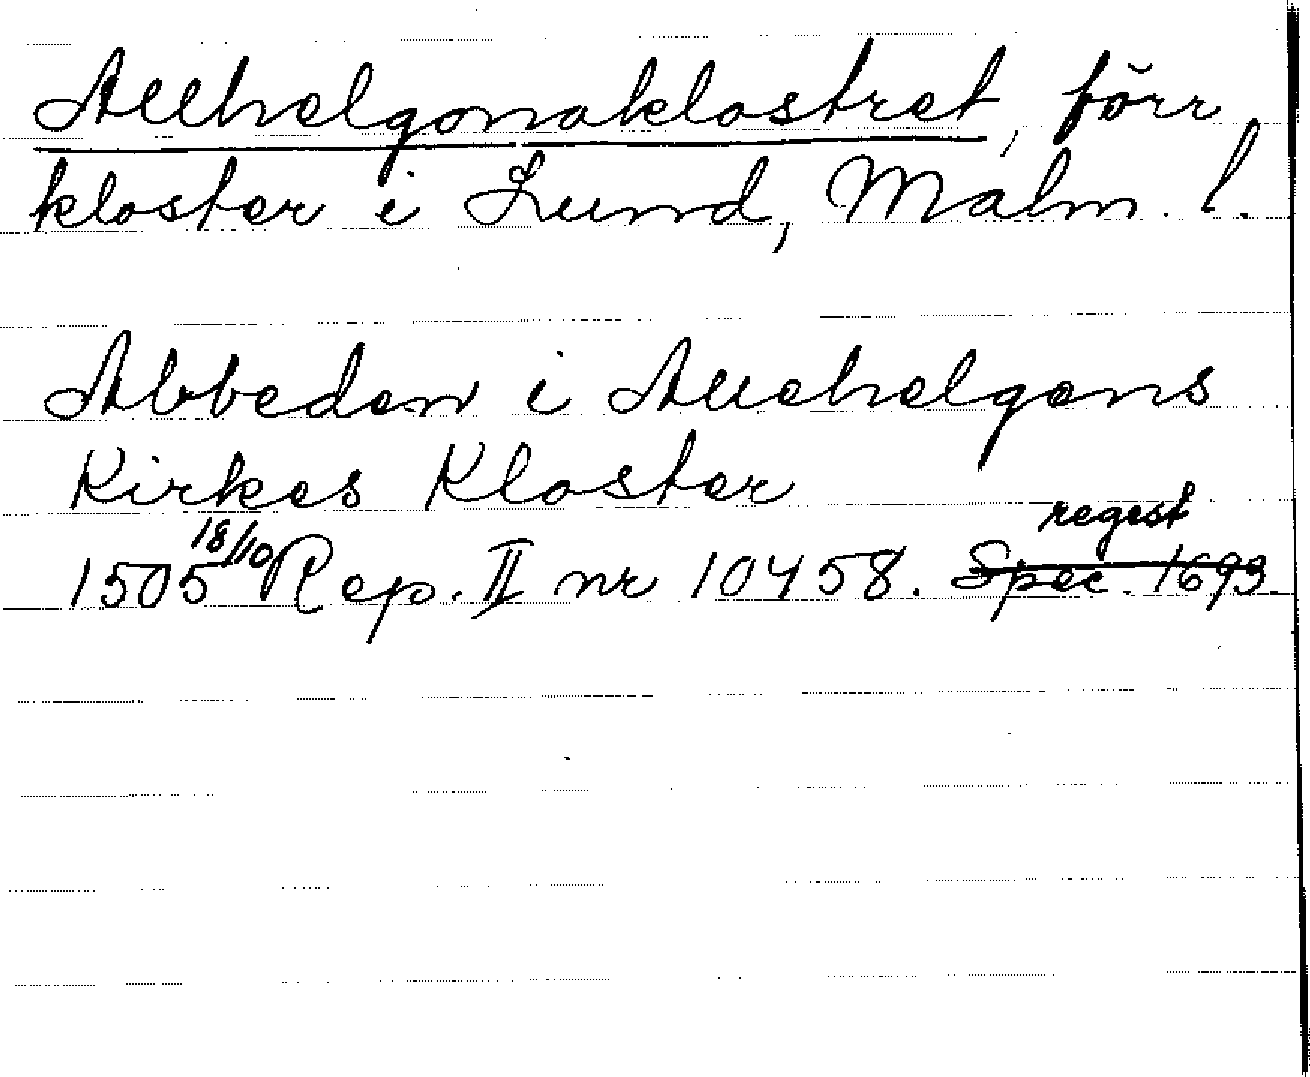 Allhelgonaklostret, förr
kloster i Lund, Malm. l.
Abbeden i Allehelgens
Kirkes Kloster
regest
1505 18/10 Rep. II nr 10458. Spec. 1693.